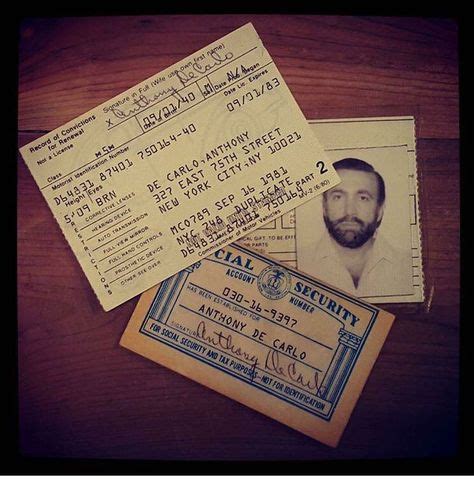 Record of Convictions
for Renewal
Not a License
Signature in Full (Wife use own first name)
x Anthony De Carlo
Class
M S M
09/01/40
Date of Birth
M
Sex
Date Lic. Expires
09/01/83
Motorist Identification Number
D64831 87401 750164-40
Height/Eyes
5'09 BRN
RESTRICTIONS
CORRECTIVE LENSES
HEARING DEVICE
AUTO. TRANSMISSION
FULL-VIEW MIRROR
FULL HAND CONTROLS
PROSTHETIC DEVICE
OTHER SEE OVER
DE CARLO-ANTHONY
327 EAST 75TH STREET
NEW YORK CITY-NY 10021
MC0789 SEP 16 1981
NYC 748 DUPLICATE
D64831 87401 750164
Commissioner of Motor Vehicles
PART 2
MV-2 (6/80)
ICAL GIFT, TO BE EFFECT
PARTS
CIAL SECURITY
ACCOUNT NUMBER
030-16-9397
HAS BEEN ESTABLISHED FOR
ANTHONY DE CARLO
SIGNATURE Anthony De Carlo
FOR SOCIAL SECURITY AND TAX PURPOSES—NOT FOR IDENTIFICATION